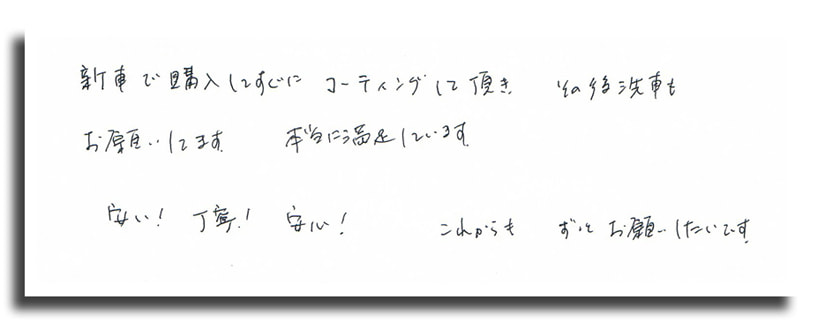 新車で購入してすぐに コーティングして頂き その後洗車も
お願いしてます 本当に満足しています
安い! 丁寧! 安心! これからも ずっとお願いしたいです